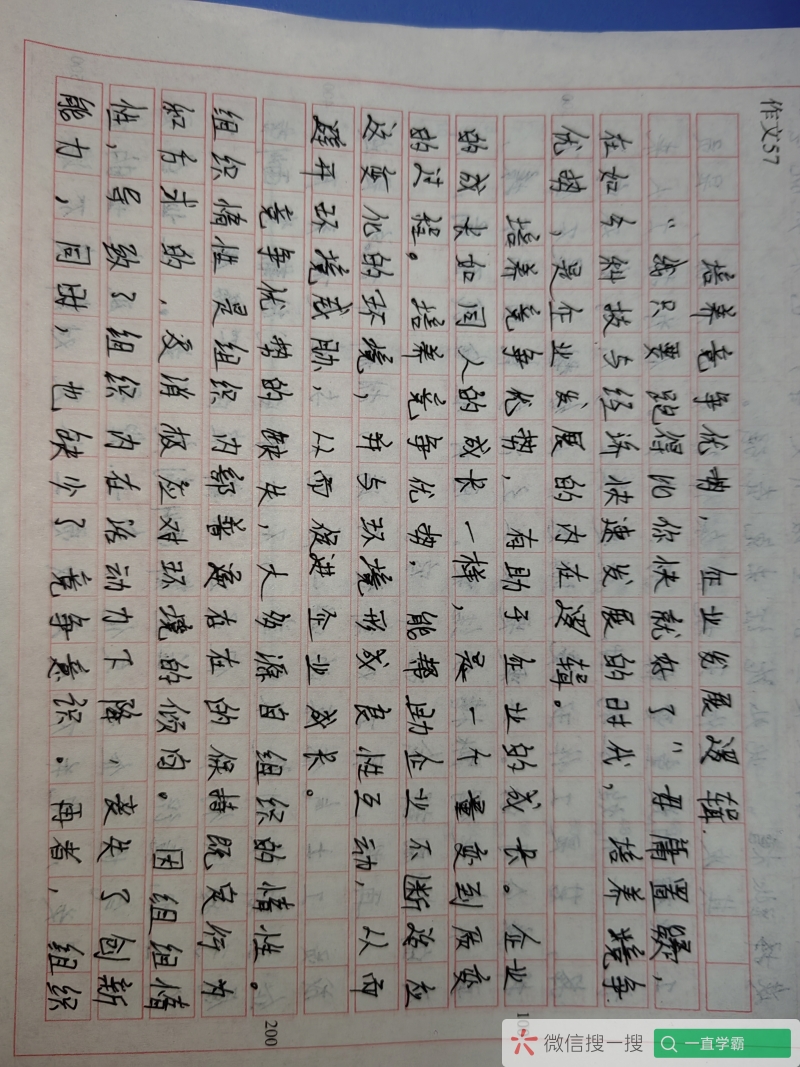 作文57
培养竞争优势，企业发展逻辑
“我只要跑得比你快就好了”毋庸置疑，
在如今科技与经济快速发展的时代，培养竞争
优势，是企业发展的内在逻辑。
培养竞争优势，有助于企业的成长。企业
的成长如同人的成长一样，是一个量变到质变
的过程。培养竞争优势，能帮助企业不断适应
这变化的环境，并与环境形成良性互动，从而
避开环境威胁，从而促进企业成长。
竞争优势的缺失，大多源自组织的惰性。
组织惰性是组织内部普遍存在的保持既定行为
和方式的，及消极应对环境的倾向。因组组惰
性，导致了组织内在活动力下降，丧失了创新
能力，同时，也缺少了竞争意识。再者，组织
100
200
微信搜一搜
一直学霸